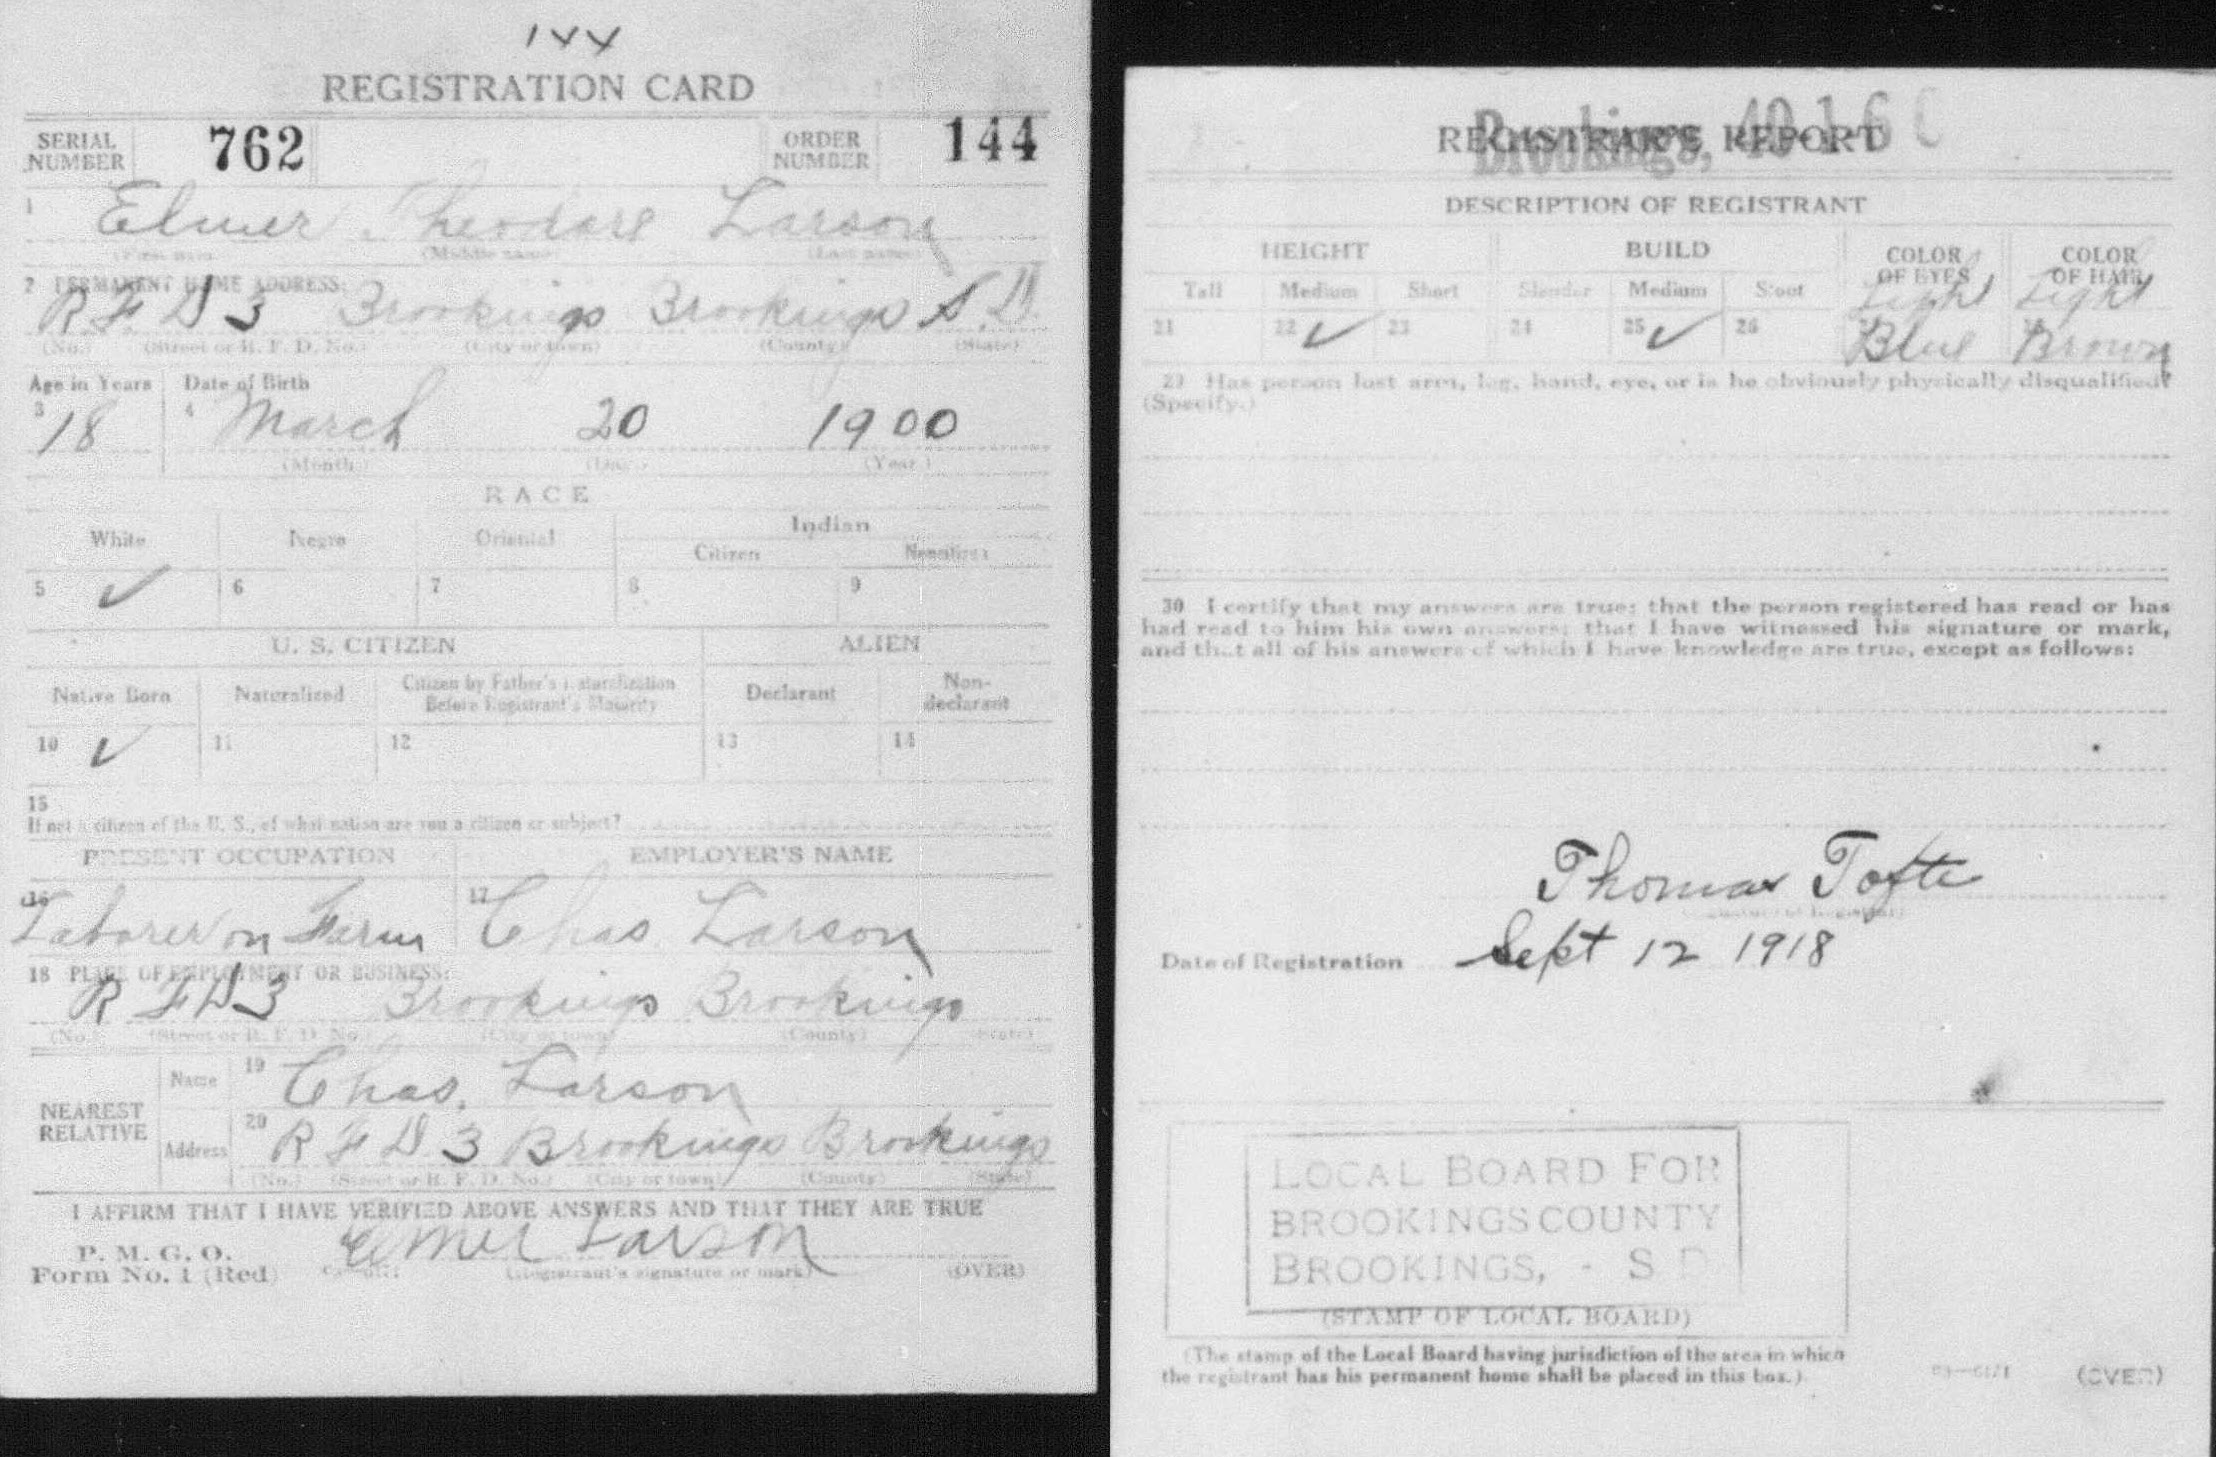 144
REGISTRATION CARD
SERIAL NUMBER 762 ORDER NUMBER 144
1 Elmer Theodore Larson
(First name) (Middle name) (Last name)
2 PERMANENT HOME ADDRESS:
R F D 3 Brookings Brookings S.D.
(No.) (Street or R. F. D. No.) (City or town) (County) (State)
Age in Years Date of Birth
3 18 4 March 20 1900
(Month) (Day) (Year)
RACE
White Negro Oriental Indian
Citizen Noncitizen
5 ✓ 6 7 8 9
U. S. CITIZEN ALIEN
Native Born Naturalized Citizen by Father's Naturalization Before Registrant's Majority Declarant Non-declarant
10 ✓ 11 12 13 14
15
If not a citizen of the U. S., of what nation are you a citizen or subject?
PRESENT OCCUPATION EMPLOYER'S NAME
16 Laborer on Farm 17 Chas. Larson
18 PLACE OF EMPLOYMENT OR BUSINESS:
R F D 3 Brookings Brookings
(No.) (Street or R. F. D. No.) (City or town) (County) (State)
NEAREST RELATIVE
Name 19 Chas. Larson
Address 20 R F D 3 Brookings Brookings
(No.) (Street or R. F. D. No.) (City or town) (County) (State)
I AFFIRM THAT I HAVE VERIFIED ABOVE ANSWERS AND THAT THEY ARE TRUE
P. M. G. O.
Form No. 1 (Red) Elmer Larson
(Registrant's signature or mark) (OVER)
REGISTRAR'S REPORT
Brookings, 40-1-6 C
DESCRIPTION OF REGISTRANT
HEIGHT BUILD COLOR OF EYES COLOR OF HAIR
Tall Medium Short Slender Medium Stout Light Light
21 22 ✓ 23 24 25 ✓ 26 Blue Brown
29 Has person lost arm, leg, hand, eye, or is he obviously physically disqualified?
(Specify.)
30 I certify that my answers are true; that the person registered has read or has
had read to him his own answers; that I have witnessed his signature or mark,
and that all of his answers of which I have knowledge are true, except as follows:
Thomas Tofte
(Signature of Registrar)
Date of Registration Sept 12 1918
LOCAL BOARD FOR
BROOKINGS COUNTY
BROOKINGS, - S D
(STAMP OF LOCAL BOARD)
(The stamp of the Local Board having jurisdiction of the area in which
the registrant has his permanent home shall be placed in this box.)
(OVER)